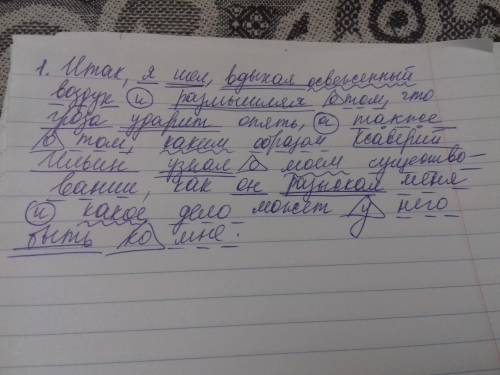 1. Итак, я шел, вдыхая освеженный
воздух и размышляя о том, что
гроза ударит опять, а также
о том, каким образом Ксаверий
Ильин узнал о моем существо-
вании, как он разыскал меня
и какое дело может у него
быть ко мне.